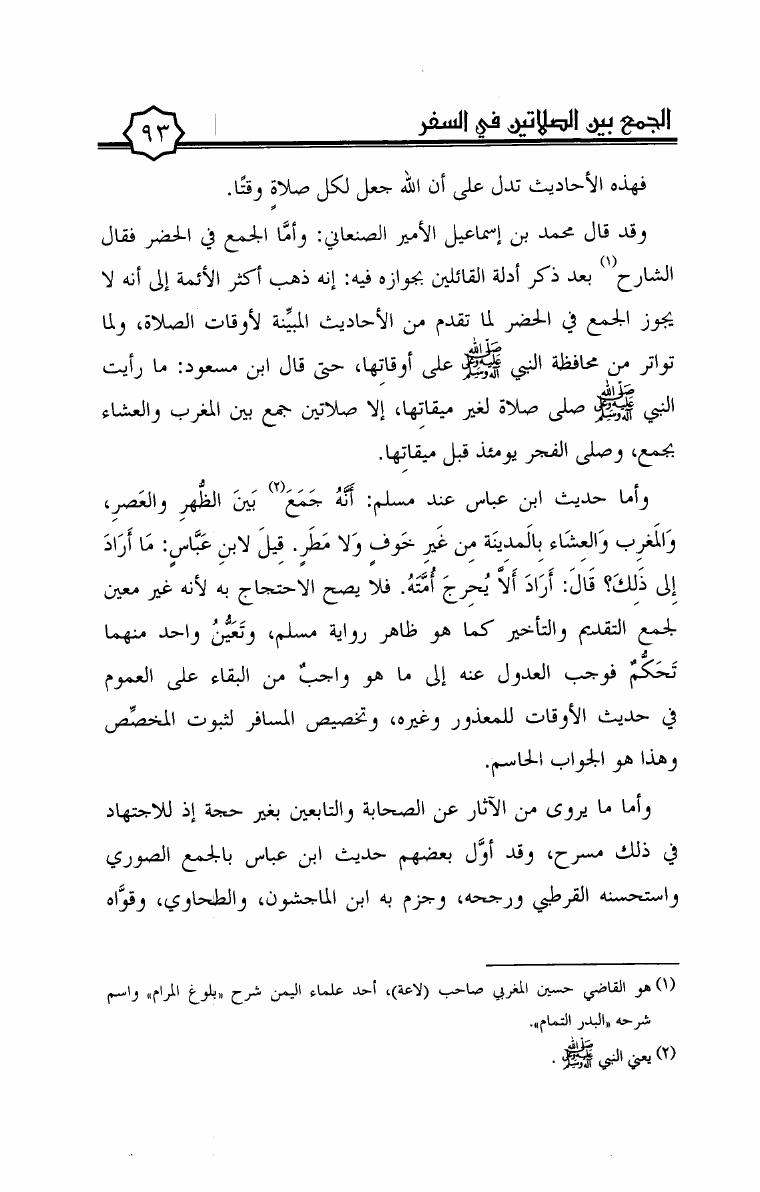 الجمع بين الصلاتين في السفر
٩٣
فهذه الأحاديث تدل على أن الله جعل لكل صلاةٍ وقتًا.
وقد قال محمد بن إسماعيل الأمير الصنعاني: وأمَّا الجمع في الحضر فقال
الشارح(١) بعد ذكر أدلة القائلين بجوازه فيه: إنه ذهب أكثر الأئمة إلى أنه لا
يجوز الجمع في الحضر لما تقدم من الأحاديث المبيِّنة لأوقات الصلاة، ولما
تواتر من محافظة النبي ﷺ على أوقاتِها، حتى قال ابن مسعود: ما رأيت
النبي ﷺ صلى صلاة لغير ميقاتِها، إلا صلاتين جمع بين المغرب والعشاء
بجمع، وصلى الفجر يومئذ قبل ميقاتِها.
وأما حديث ابن عباس عند مسلم: أَنَّهُ جَمَعَ(٢) بَينَ الظُّهرِ والعَصرِ،
وَالمَغرِب وَالعِشَاء بِالَمدِينَة مِن غَيرِ خَوفٍ وَلا مَطَرٍ. قِيلَ لابنِ عَبَّاسٍ: مَا أَرَادَ
إِلى ذَلِكَ؟ قَالَ: أَرَادَ أَلاَّ يُحرِجَ أُمَّتَهُ. فلا يصح الاحتجاج به لأنه غير معين
لجمع التقديم والتأخير كما هو ظاهر رواية مسلم، وتَعَيُّنُ واحد منهما
تَحَكُّمٌ فوجب العدول عنه إلى ما هو واجبٌ من البقاء على العموم
في حديث الأوقات للمعذور وغيره، وتخصيص المسافر لثبوت المخصِّص
وهذا هو الجواب الحاسم.
وأما ما يروى من الآثار عن الصحابة والتابعين بغير حجة إذ للاجتهاد
في ذلك مسرح، وقد أوَّل بعضهم حديث ابن عباس بالجمع الصوري
واستحسنه القرطبي ورجحه، وجزم به ابن الماجشون، والطحاوي، وقوَّاه
(١) هو القاضي حسين المغربي صاحب (لاعة)، أحد علماء اليمن شرح «بلوغ المرام» واسم
شرحه «البدر التمام».
(٢) يعني النبي ﷺ .